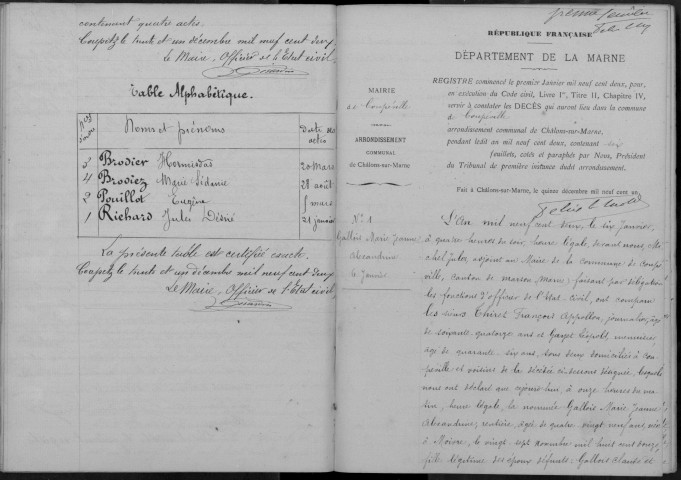 contenant quatre actes.
Coupéville trente et un décembre mil neuf cent deux
Le Maire, Officier de l'Etat civil,
Table Alphabétique.
Nos d'ordre
Noms et prénoms
Date des actes
3 Brodier Hormisdas 20 Mars
4 Brodiez Marie Lidamie 28 août
2 Pouillot Eugène 1 mars
1 Richard Jules Désiré 21 janvier
La présente table est certifiée exacte.
Coupéville trente et un décembre mil neuf cent deux
Le Maire, Officier de l'Etat civil,
premier feuillet
RÉPUBLIQUE FRANÇAISE
DÉPARTEMENT DE LA MARNE
MAIRIE
de Coupéville
ARRONDISSEMENT
COMMUNAL
de Châlons-sur-Marne
REGISTRE commencé le premier Janvier mil neuf cent deux, pour,
en exécution du Code civil, Livre Ier, Titre II, Chapitre IV,
servir à constater les DÉCÈS qui auront lieu dans la commune
de Coupéville
arrondissement communal de Châlons-sur-Marne,
pendant ledit an mil neuf cent deux, contenant six
feuillets, cotés et paraphés par Nous, Président
du Tribunal de première instance dudit arrondissement.
Fait à Châlons-sur-Marne, le quinze décembre mil neuf cent un
No 1
Gallois Marie Jeanne
Alexandrine
6 Janvier
L'An mil neuf cent deux, le six Janvier,
à quatre heures du soir, heure légale, devant nous, Mi-
chel Jules, adjoint au Maire de la commune de Coupé-
ville, canton de Marson (Marne) faisant par délégation
les fonctions d'officier de l'état-civil, ont comparu
les sieurs Thiret François Appollon, journalier, âgé
de soixante quatorze ans et Gangel Léopold, menuisier,
âgé de quarante-six ans, tous deux domiciliés à Cou-
péville et voisins de la décédée ci-dessous désignée, lesquels
nous ont déclaré que cejourd'hui, à onze heures du ma-
tin, heure légale, la nommée Gallois Marie Jeanne
Alexandrine, rentière, âgée de quatre vingt neuf ans, née
à Moivre, le vingt sept novembre mil huit cent douze,
fille légitime des époux défunts, Gallois Claude et